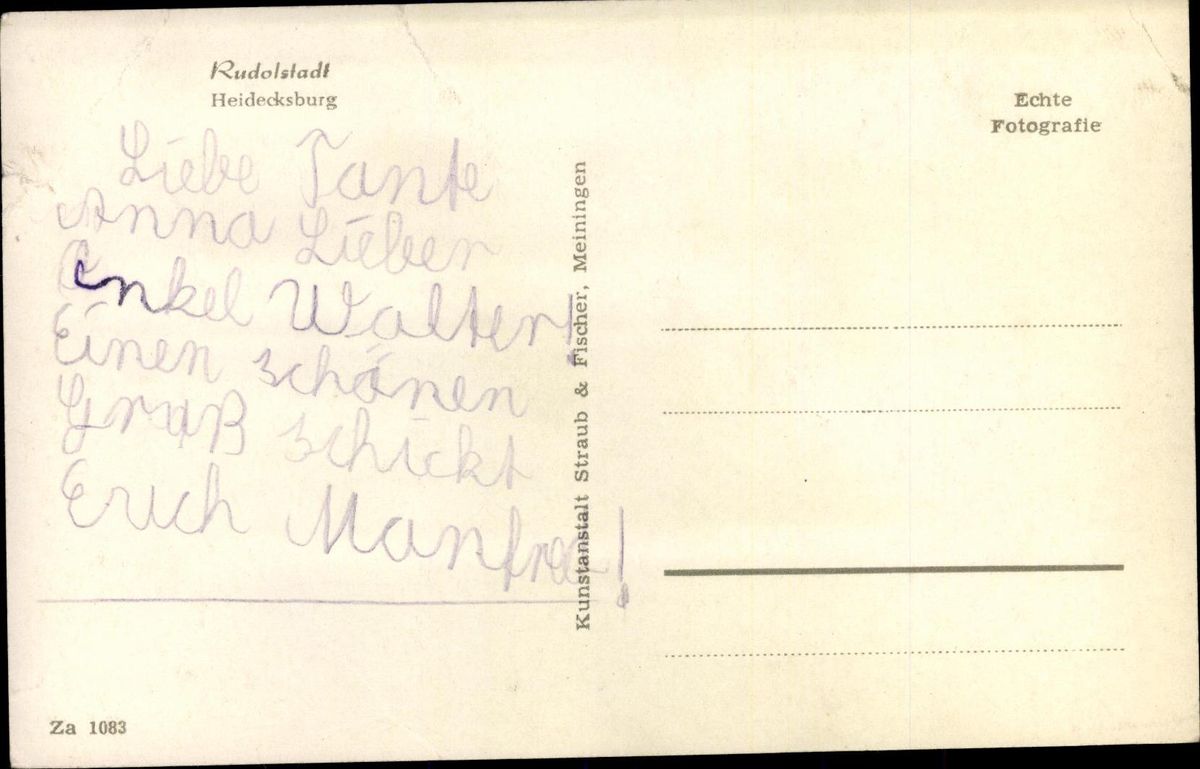 Rudolstadt
Heidecksburg
Echte
Fotografie
Liebe Tante
Anna Lieber
Onkel Walter!
Einen schönen
Gruß schickt
Erich Manfred!
Kunstanstalt Straub & Fischer, Meiningen
Za 1083